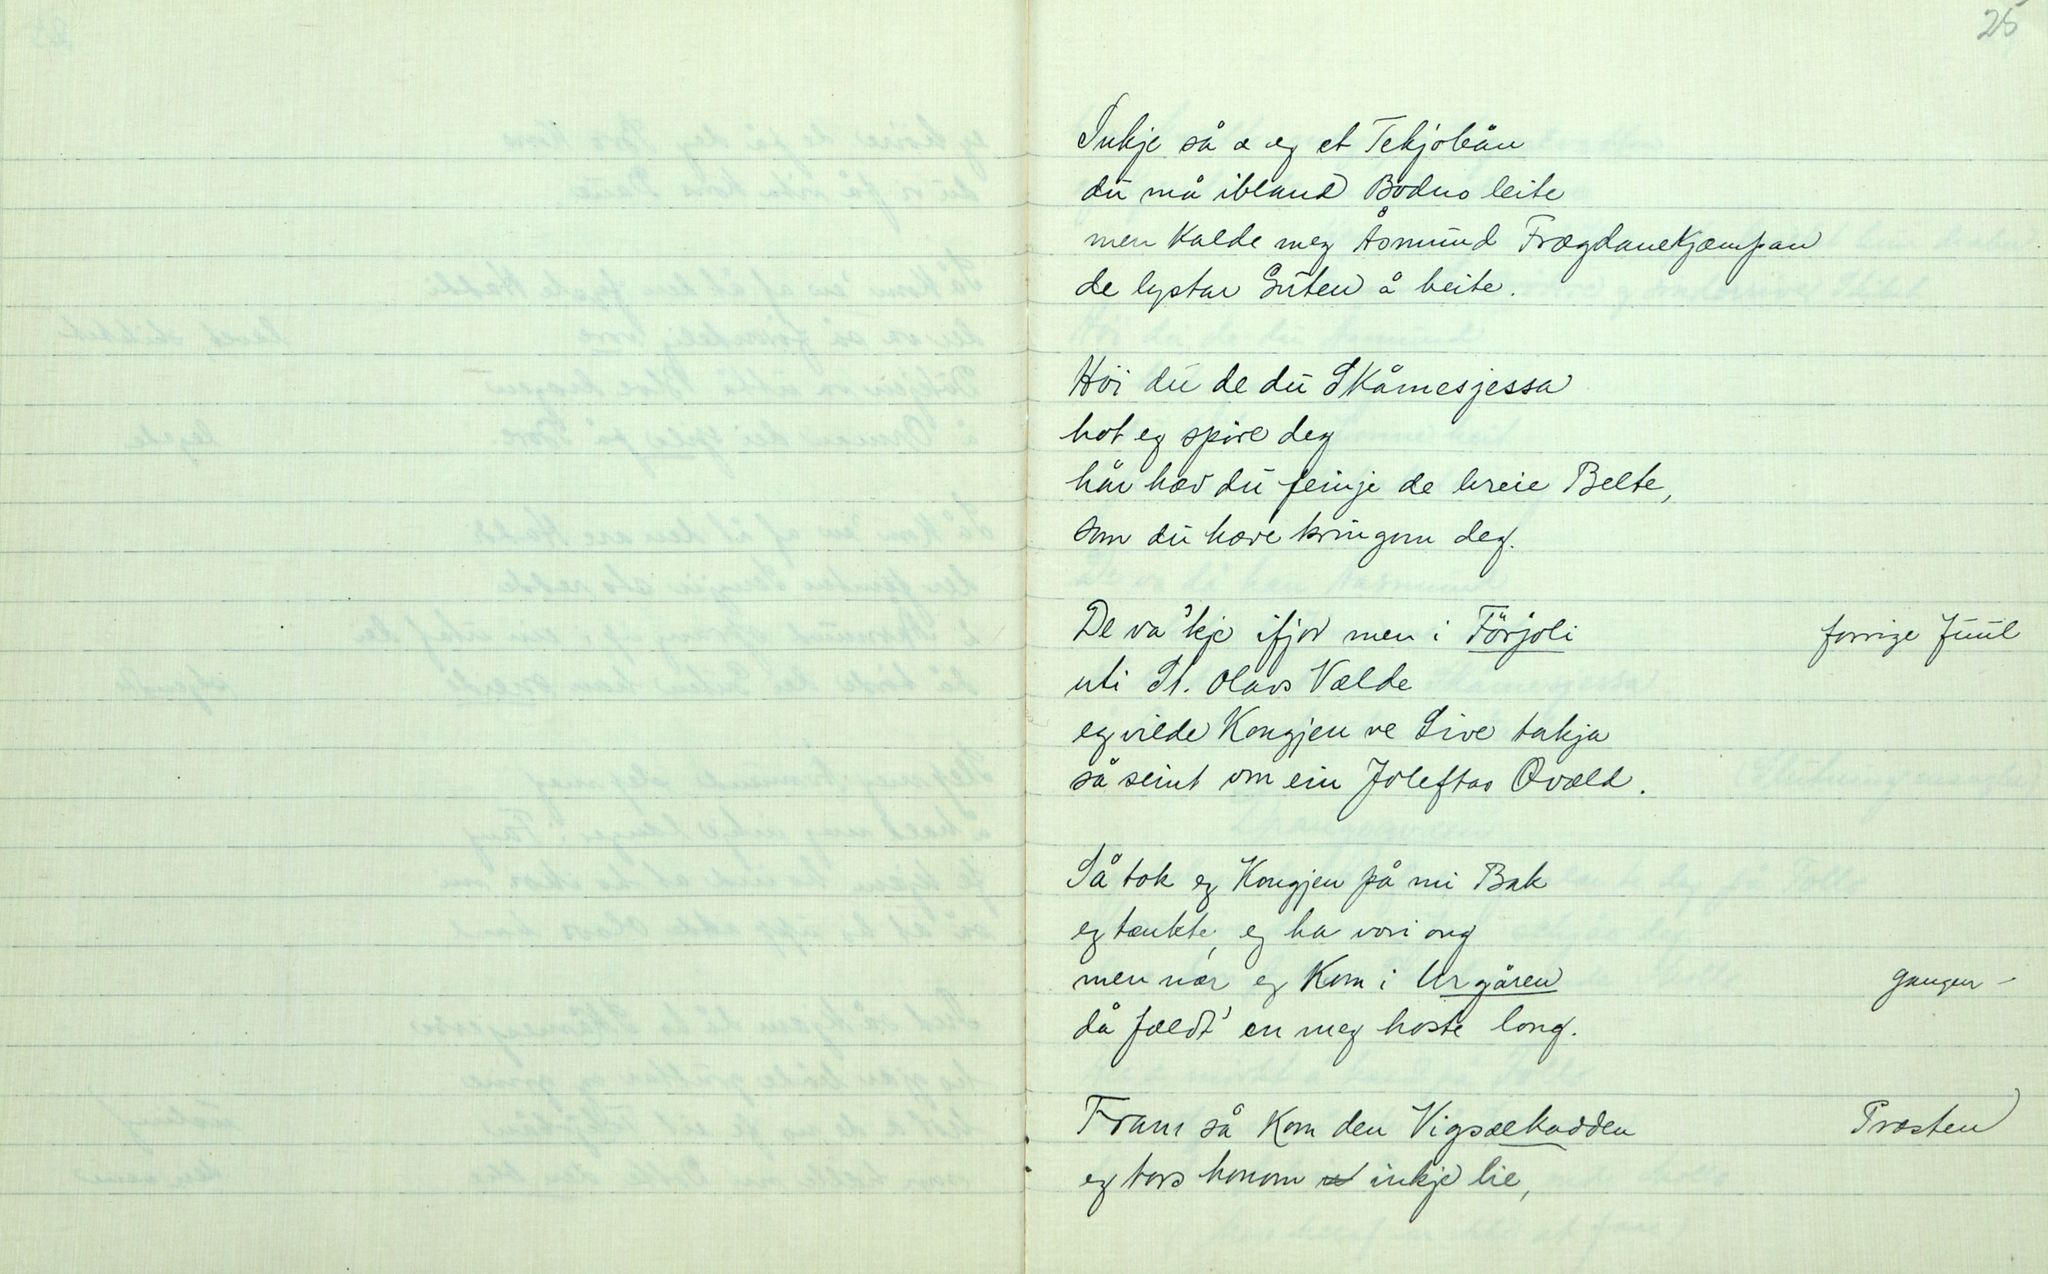 25
Inkje så æ eg et Tekjobån
du må ibland Bodno leite
men kalde meg Åsmund Frægdanekjæmpan
de lystar Guten å heite.
Höi du de du Skåmesjessa
hot eg spöre deg
hår hæv du feinje de breie Belte,
som du hæve kringom deg.
De va 'kje ifjor men i Förjoli forrige Juul
uti St. Olavs Vælde
eg vilde Kongjen ve Live takja
så seint om ein Joleftas Qvæld.
Så tok eg Kongjen på mi Bak
eg tænkte, eg ha vori ong
men nær eg kom i Urgåren gangen
då fældt' en meg hoste long.
Fram så kom den Vigsælhadden Præsten
eg tors honom inkje lie,